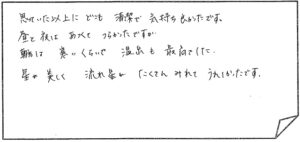 思っていた以上に どこも 清潔で 気持ち良かったです。
昼と夜は あつくて つらかったですが
朝は 寒いくらいで 温泉も 最高でした。
星が美しく 流れ星が たくさん みれて うれしかったです。